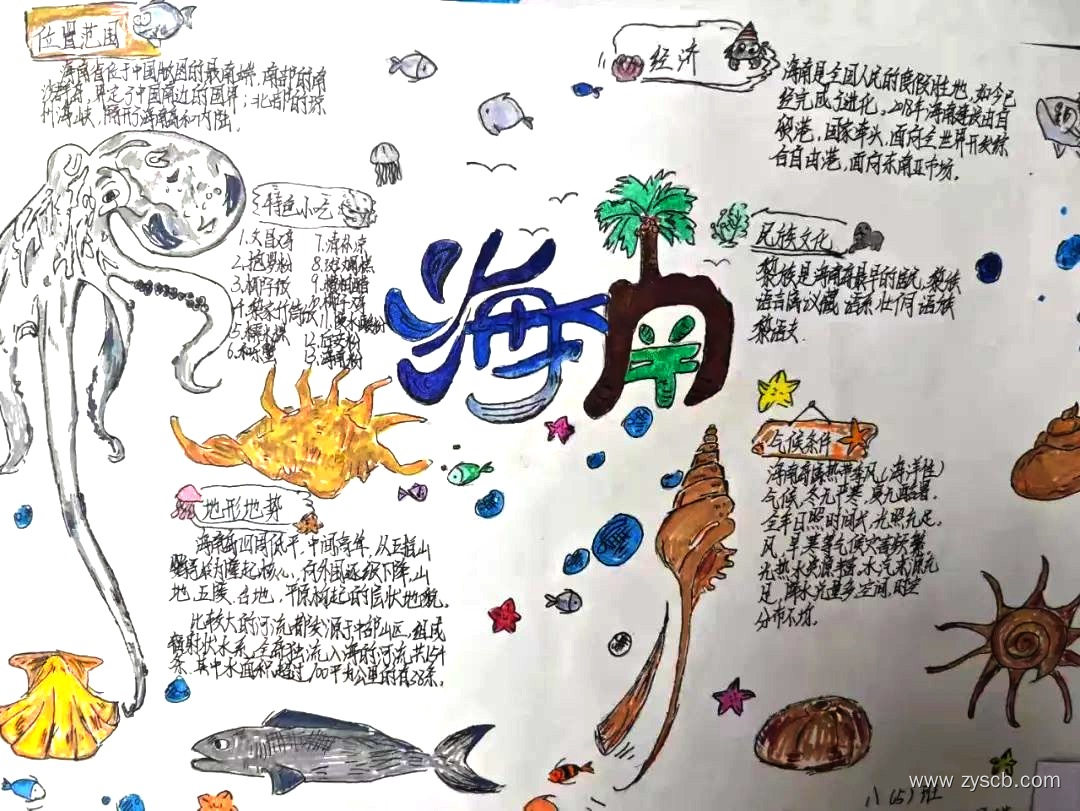 位置范围
海南省位于中国版图的最南端,南部的南
沙群岛,界定了中国南边的国界;北部的琼
州海峡,隔开了海南岛和内陆.
特色小吃
1.文昌鸡
2.抱罗粉
3.椰子饭
4.黎家竹筒饭
7.清补凉
13.海南粉
海南
地形地势
海南岛四周低平,中间高耸,从五指山
为隆起核心,向外围逐级下降,山
地、丘陵、台地、平原构起的层状地貌。
比较大的河流都发源于中部山区,组成
辐射状水系.全岛独流入海的河流共154
条.其中水面积超过100平方公里的有38条.
经济
海南是全国人民的度假胜地,如今已
经完成了进化,2018年海南建设由自
贸港,国家牵头,面向全世界开发综
合自由港,面向东南亚市场。
民族文化
黎族是海南岛最早的居民,黎族
语言属汉藏语系壮侗语族
黎语支.
气候条件
海南岛属热带季风(海洋性)
气候,冬无严寒,夏无酷暑.
全年日照时间长,光照充足.
风、旱、寒等气候灾害频繁
光热水资源丰富,水汽来源充
足,降水充量多,空间、时空
分布不均.
八(5)班
www.zyscb.com